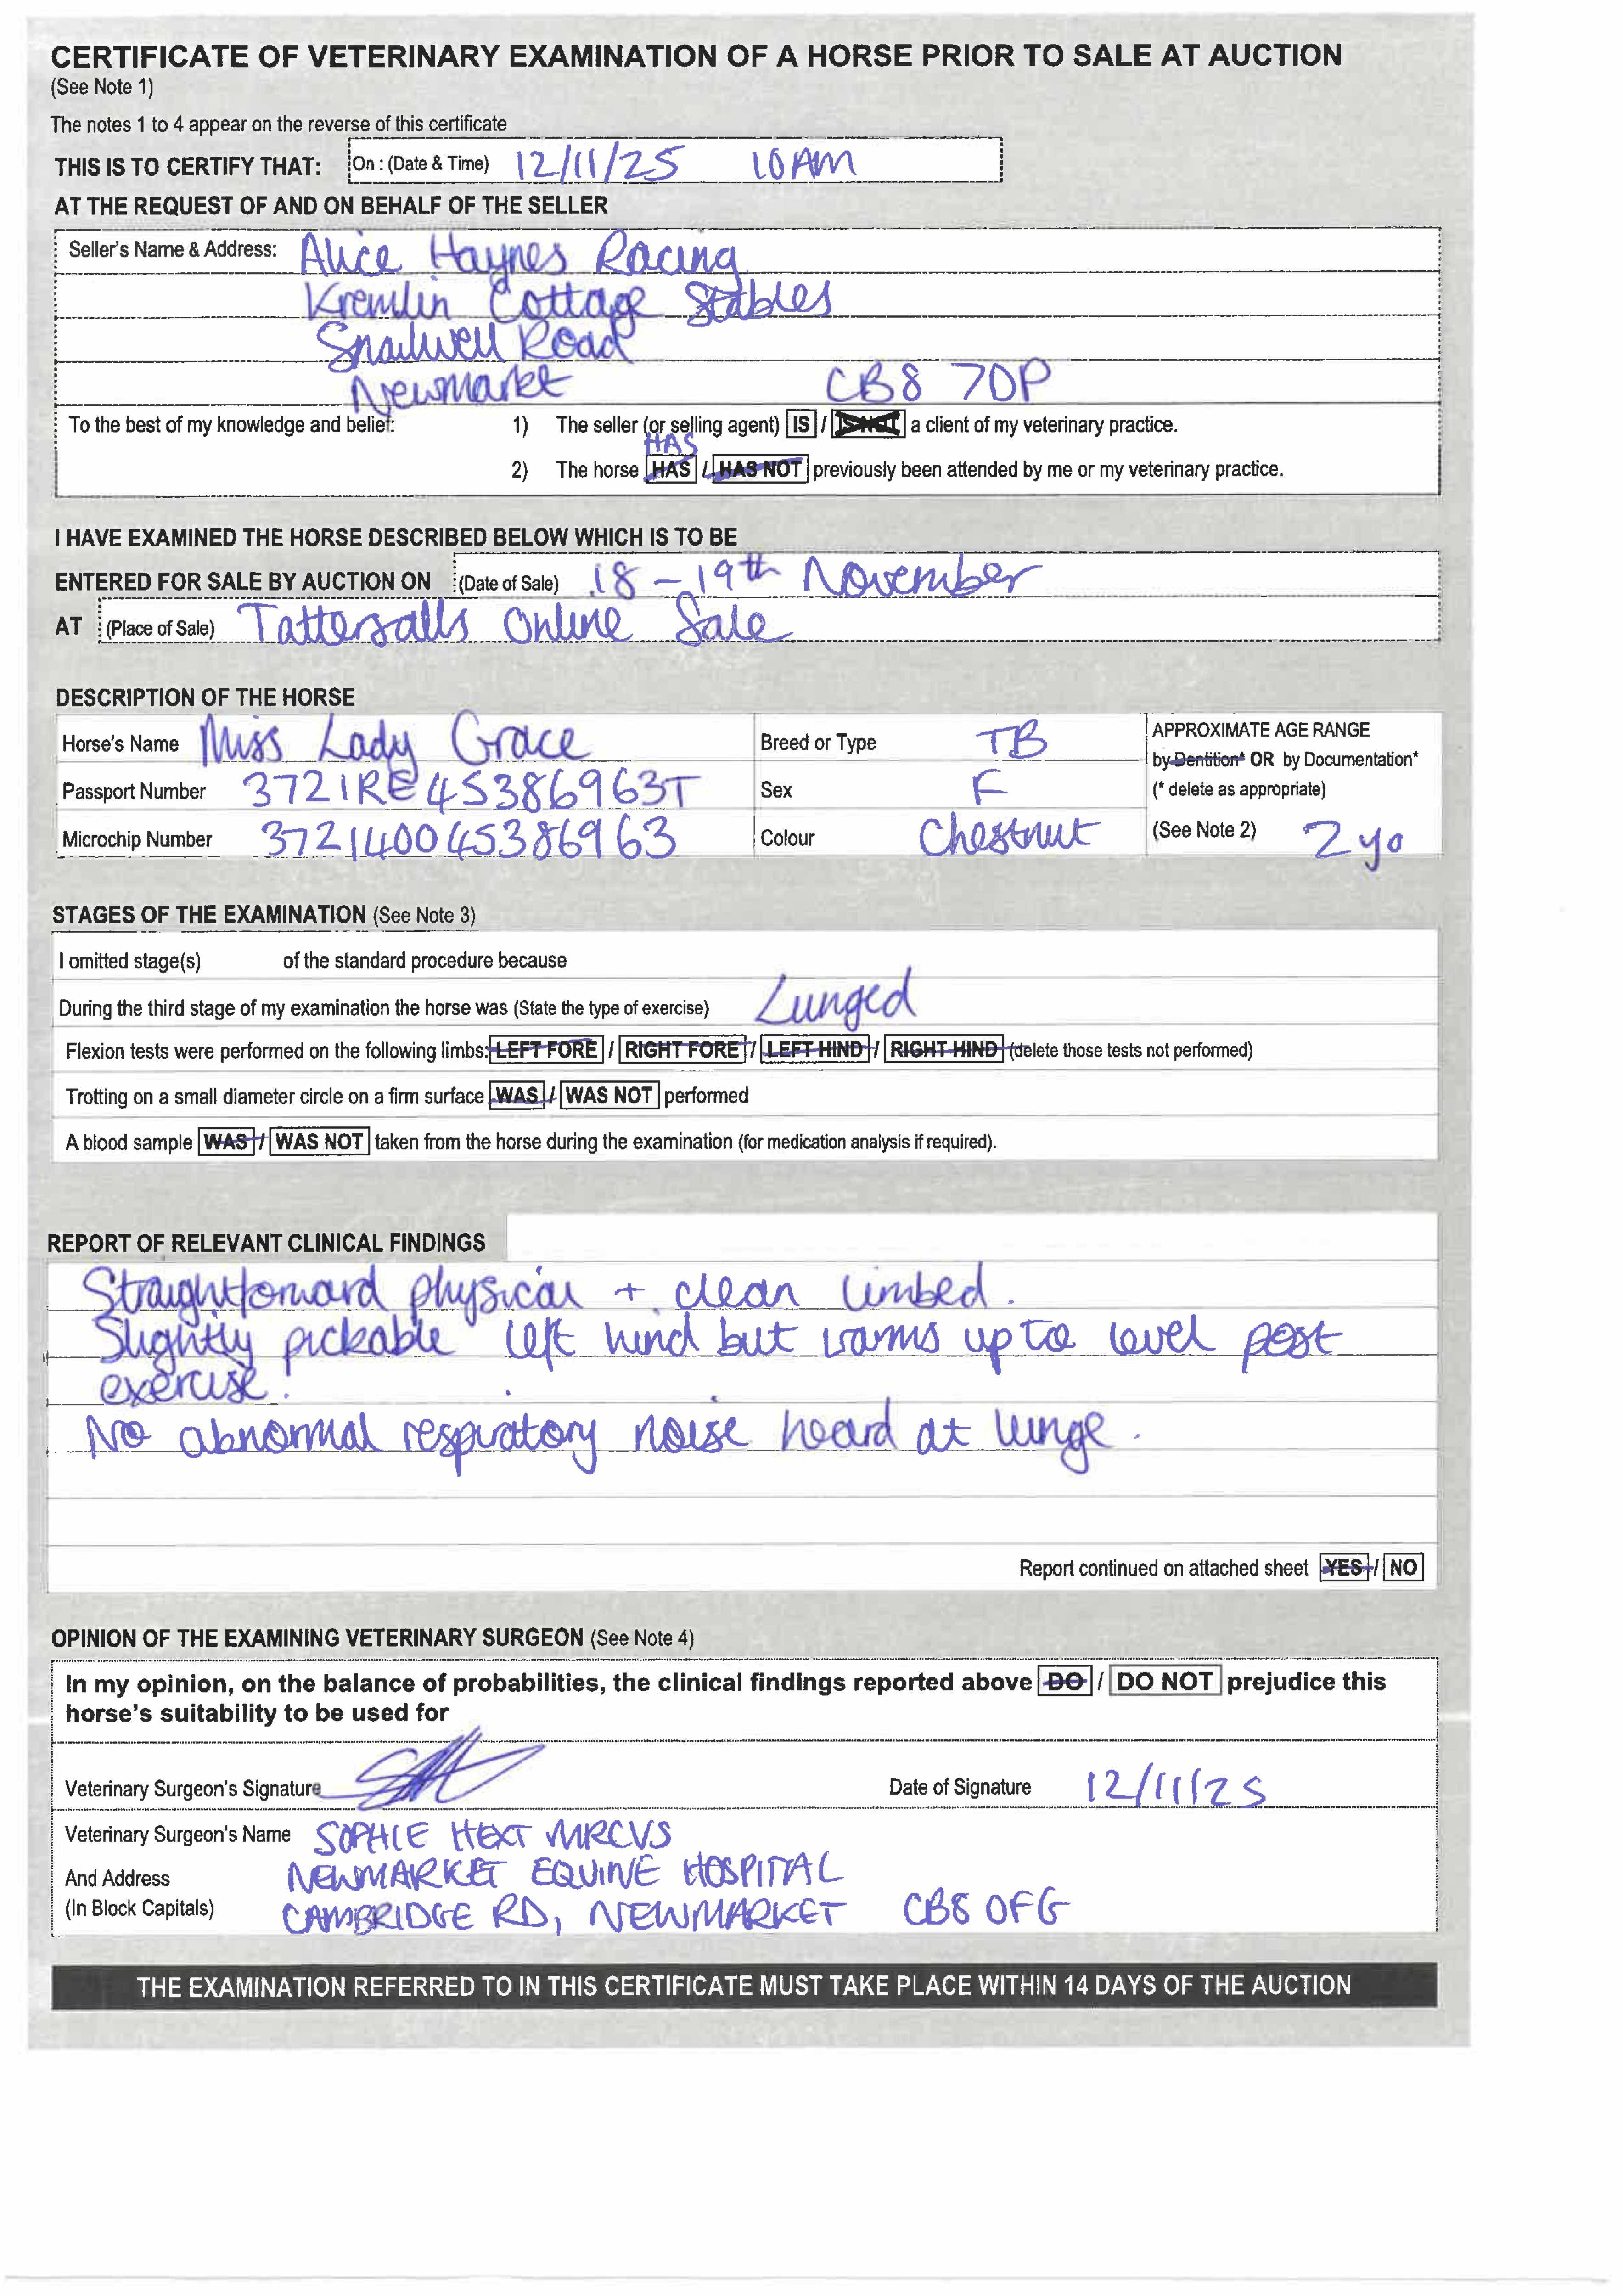 CERTIFICATE OF VETERINARY EXAMINATION OF A HORSE PRIOR TO SALE AT AUCTION
(See Note 1)
The notes 1 to 4 appear on the reverse of this certificate
THIS IS TO CERTIFY THAT: On : (Date & Time) 12/11/25 10AM
AT THE REQUEST OF AND ON BEHALF OF THE SELLER
Seller's Name & Address: Alice Haynes Racing
Kremlin Cottage Stables
Snailwell Road
Newmarket CB8 7DP
To the best of my knowledge and belief: 1) The seller (or selling agent) IS / IS NOT a client of my veterinary practice.
HAS
2) The horse HAS / HAS NOT previously been attended by me or my veterinary practice.
I HAVE EXAMINED THE HORSE DESCRIBED BELOW WHICH IS TO BE
ENTERED FOR SALE BY AUCTION ON (Date of Sale) 18 - 19th November
AT (Place of Sale) Tattersalls Online Sale
DESCRIPTION OF THE HORSE
Horse's Name Miss Lady Grace Breed or Type TB APPROXIMATE AGE RANGE
by Dentition* OR by Documentation*
Passport Number 372IRE45386963T Sex F (* delete as appropriate)
Microchip Number 372140045386963 Colour Chestnut (See Note 2) 2yo
STAGES OF THE EXAMINATION (See Note 3)
I omitted stage(s) of the standard procedure because
During the third stage of my examination the horse was (State the type of exercise) Lunged
Flexion tests were performed on the following limbs: LEFT FORE / RIGHT FORE / LEFT HIND / RIGHT HIND (delete those tests not performed)
Trotting on a small diameter circle on a firm surface WAS / WAS NOT performed
A blood sample WAS / WAS NOT taken from the horse during the examination (for medication analysis if required).
REPORT OF RELEVANT CLINICAL FINDINGS
Straightforward physical + clean limbed.
Slightly pickable left hind but warms up to level post
exercise.
No abnormal respiratory noise heard at lunge.
Report continued on attached sheet YES / NO
OPINION OF THE EXAMINING VETERINARY SURGEON (See Note 4)
In my opinion, on the balance of probabilities, the clinical findings reported above DO / DO NOT prejudice this
horse's suitability to be used for
Veterinary Surgeon's Signature Date of Signature 12/11/25
Veterinary Surgeon's Name SOPHIE HEXT MRCVS
And Address NEWMARKET EQUINE HOSPITAL
(In Block Capitals) CAMBRIDGE RD, NEWMARKET CB8 0FG
THE EXAMINATION REFERRED TO IN THIS CERTIFICATE MUST TAKE PLACE WITHIN 14 DAYS OF THE AUCTION